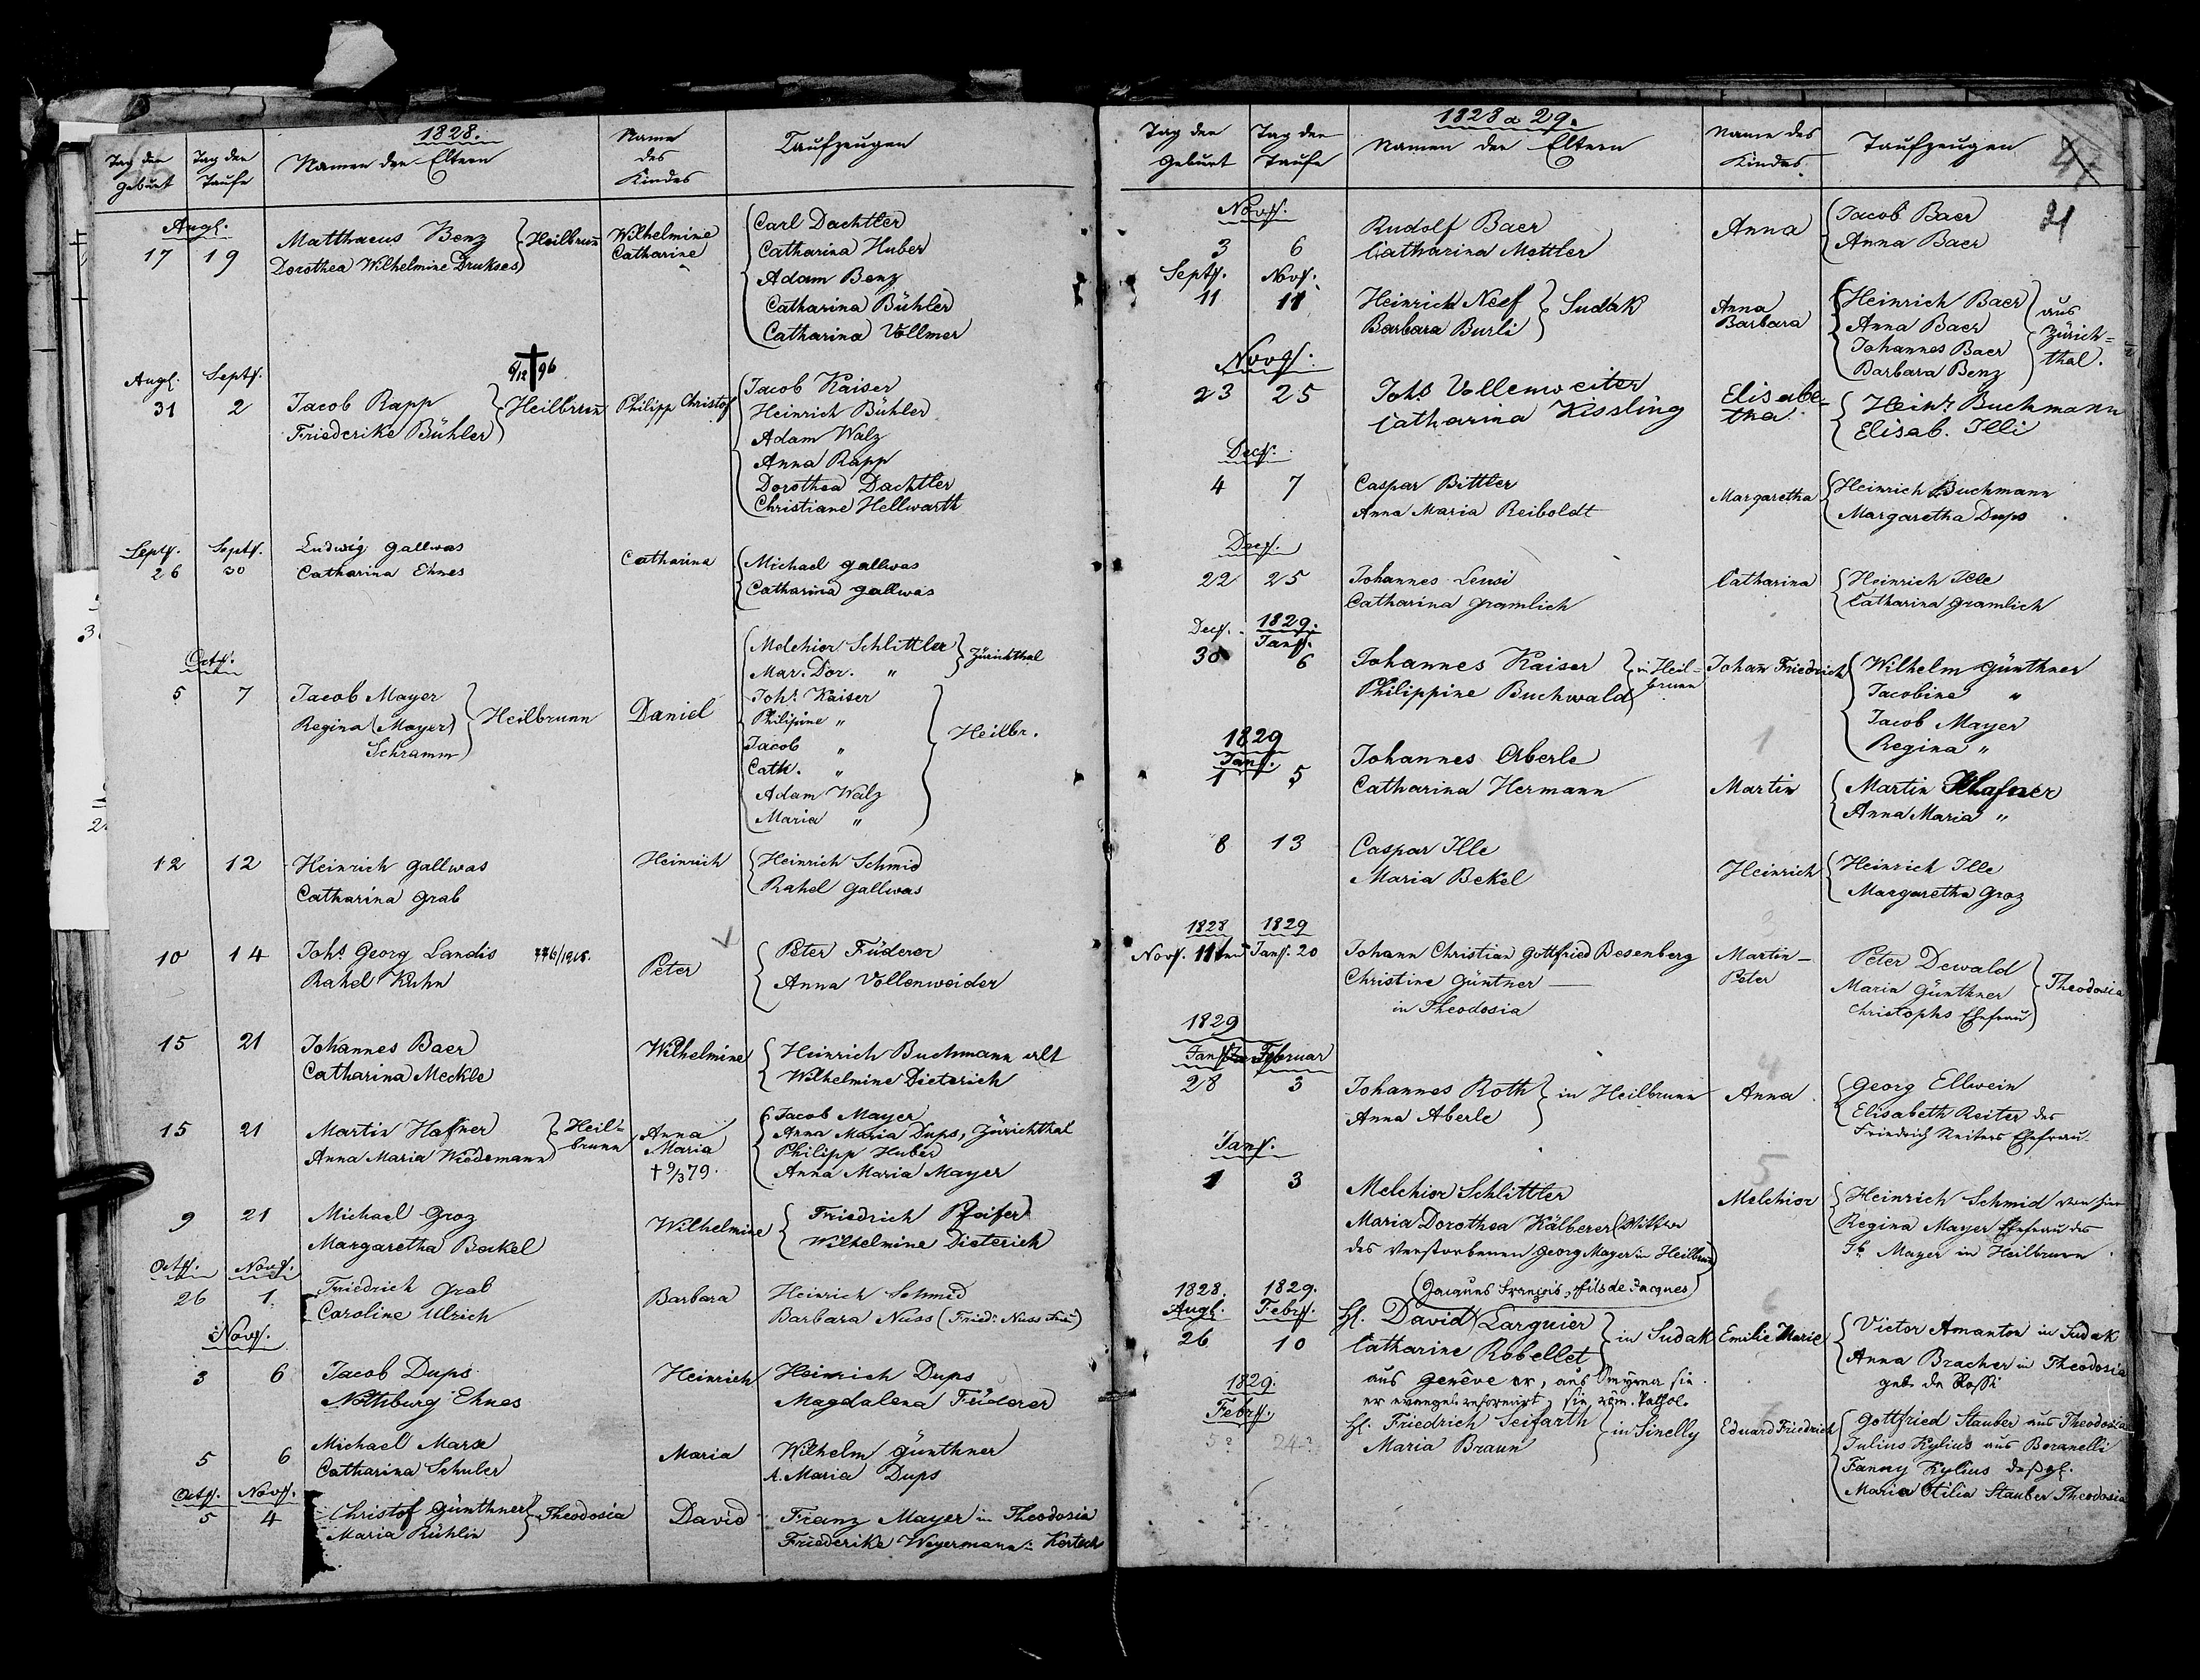 1828.
Tag der Geburt
Tag der Taufe
Namen der Eltern
Name des Kindes
Taufzeugen
Augs.
17 19
Matthaeus Benz } Heilbrunn
Dorothea Wilhelmine Drukses
Wilhelmine
Catharine
Carl Dachtler
Catharina Huber
Adam Benz
Catharina Bühler
Catharina Vollmer
Augs. Septs.
31 2
9/12 † 96
Jacob Rapp } Heilbrunn
Friederike Bühler
Philipp Christof
Jacob Kaiser
Heinrich Bühler
Adam Walz
Anna Rapp
Dorothea Dachtler
Christiane Hellwarth
Septs. Septs.
26 30
Ludwig Gallwas
Catharina Ehnes
Catharina
Michael Gallwas
Catharina Gallwas
Octs.
5 7
Jacob Mayer
Regina (Mayer) } Heilbrunn
Schramm
Daniel
Melchior Schlittler } Zürichthal
Mar. Dor. "
Johs. Kaiser
Philipine "
Jacob " } Heilbr.
Cath. "
Adam Walz
Maria "
12 12
Heinrich Gallwas
Catharina Grab
Heinrich
Heinrich Schmid
Rahel Gallwas
10 14
Johs Georg Landis
Rahel Kuhn
Peter
Peter Füderer
Anna Vollenweider
15 21
Johannes Baer
Catharina Meckle
Wilhelmine
Heinrich Buchmann alt
Wilhelmine Dieterich
15 21
Martin Hafner } Heil=
Anna Maria Wiedemann brunn
Anna
Maria
† 9/3 79.
Jacob Mayer
Anna Maria Dups, Zürichthal
Philipp Huber
Anna Maria Mayer
9 21
Michael Groz
Margaretha Bekel
Wilhelmine
Friedrich Pfeifer
Wilhelmine Dieterich
Octs. Novs.
26 1.
Friedrich Grab
Caroline Ulrich
Barbara
Heinrich Schmid
Barbara Nuss (Friedr. Nuss Frau)
Novs.
3 6
Jacob Dups
Nothburg Ehnes
Heinrich
Heinrich Dups
Magdalena Füderer
5 6
Michael Marx
Catharina Schuler
Maria
Wilhelm Günthner
A. Maria Dups
Octs. Novs.
5 4
Christof Günthner } Theodosia
Maria Rühlin
David
Franz Mayer in Theodosia
Friederike Weyermann: Kertsch
1828 a 29.
Tag der Geburt
Tag der Taufe
Namen der Eltern
Name des Kindes.
Taufzeugen
21
Novs.
3 6
Rudolf Baer
Catharina Mettler
Anna
Jacob Baer
Anna Baer
Septs. Novs.
11 11
Heinrich Neef } Sudak
Barbara Burli
Anna
Barbara
Heinrich Baer
Anna Baer
Johannes Baer
Barbara Benz
aus
Zürich=
thal.
Novs.
23 25
Johs Vollenweiter
Catharina Kissling
Elisabe-
tha.
Heinr. Buchmann
Elisab. Illi
Decs.
4 7
Caspar Bittler
Anna Maria Reiboldt
Margaretha
Heinrich Buchmann
Margaretha Dups
Decs.
22 25
Johannes Leusi
Catharina Gramlich
Catharina
Heinrich Ille
Catharina Gramlich
Decs. 1829. Jans.
30 6
Johannes Kaiser } in Heil=
Philippine Buchwald brunn
Johann Friedrich
Wilhelm Günthner
Jacobine "
Jacob Mayer
Regina "
1829
Jans.
1 5
Johannes Aberle
Catharina Hermann
1
Martin
Martin Hafner
Anna Maria "
8 13
Caspar Ille
Maria Bekel
Heinrich
Heinrich Ille
Margaretha Groz
1828 1829
Novs. 11ten Jans. 20
Johann Christian Gottfried Besenberg
Christine Güntner —
in Theodosia
3
Martin-
Peter
Peter Dewald
Maria Günthner } Theodosia
Christophs Ehefrau
1829
Jans. Februar
28 3
Johannes Roth } in Heilbrunn
Anna Aberle
4
Anna
Georg Ellwein
Elisabeth Reiter des
Friedrich Reiters Ehefrau
Jans.
1 3
Melchior Schlittler
Maria Dorothea Kälberer (Wittwe
des verstorbenen Georg Mayer in Heilbrun)
5
Melchior
Heinrich Schmid von hier
Regina Mayer Ehefrau des
Jb Mayer in Heilbrunn
1828. 1829.
Augs. Febrs.
26 10
(Jacques François, fils de Jacques)
H. David Larguier } in Sudak
Catharine Robellet
aus Genêve er, aus Smyrna sie.
er evangel. reformirt, sie röm. Kathol.
6
Emilie Marie
Victor Amanton in Sudak
Anna Bracher in Theodosia
geb. de Rossi
1829.
Febrs.
5? 24?
H. Friedrich Seifarth } in Sinelly
Maria Braun
Eduard Friedrich
Gottfried Stauber aus Theodosia
Julius Kylius aus Boranelli
Fanny Kylius desgl.
Maria Otilia Stauber Theodosia